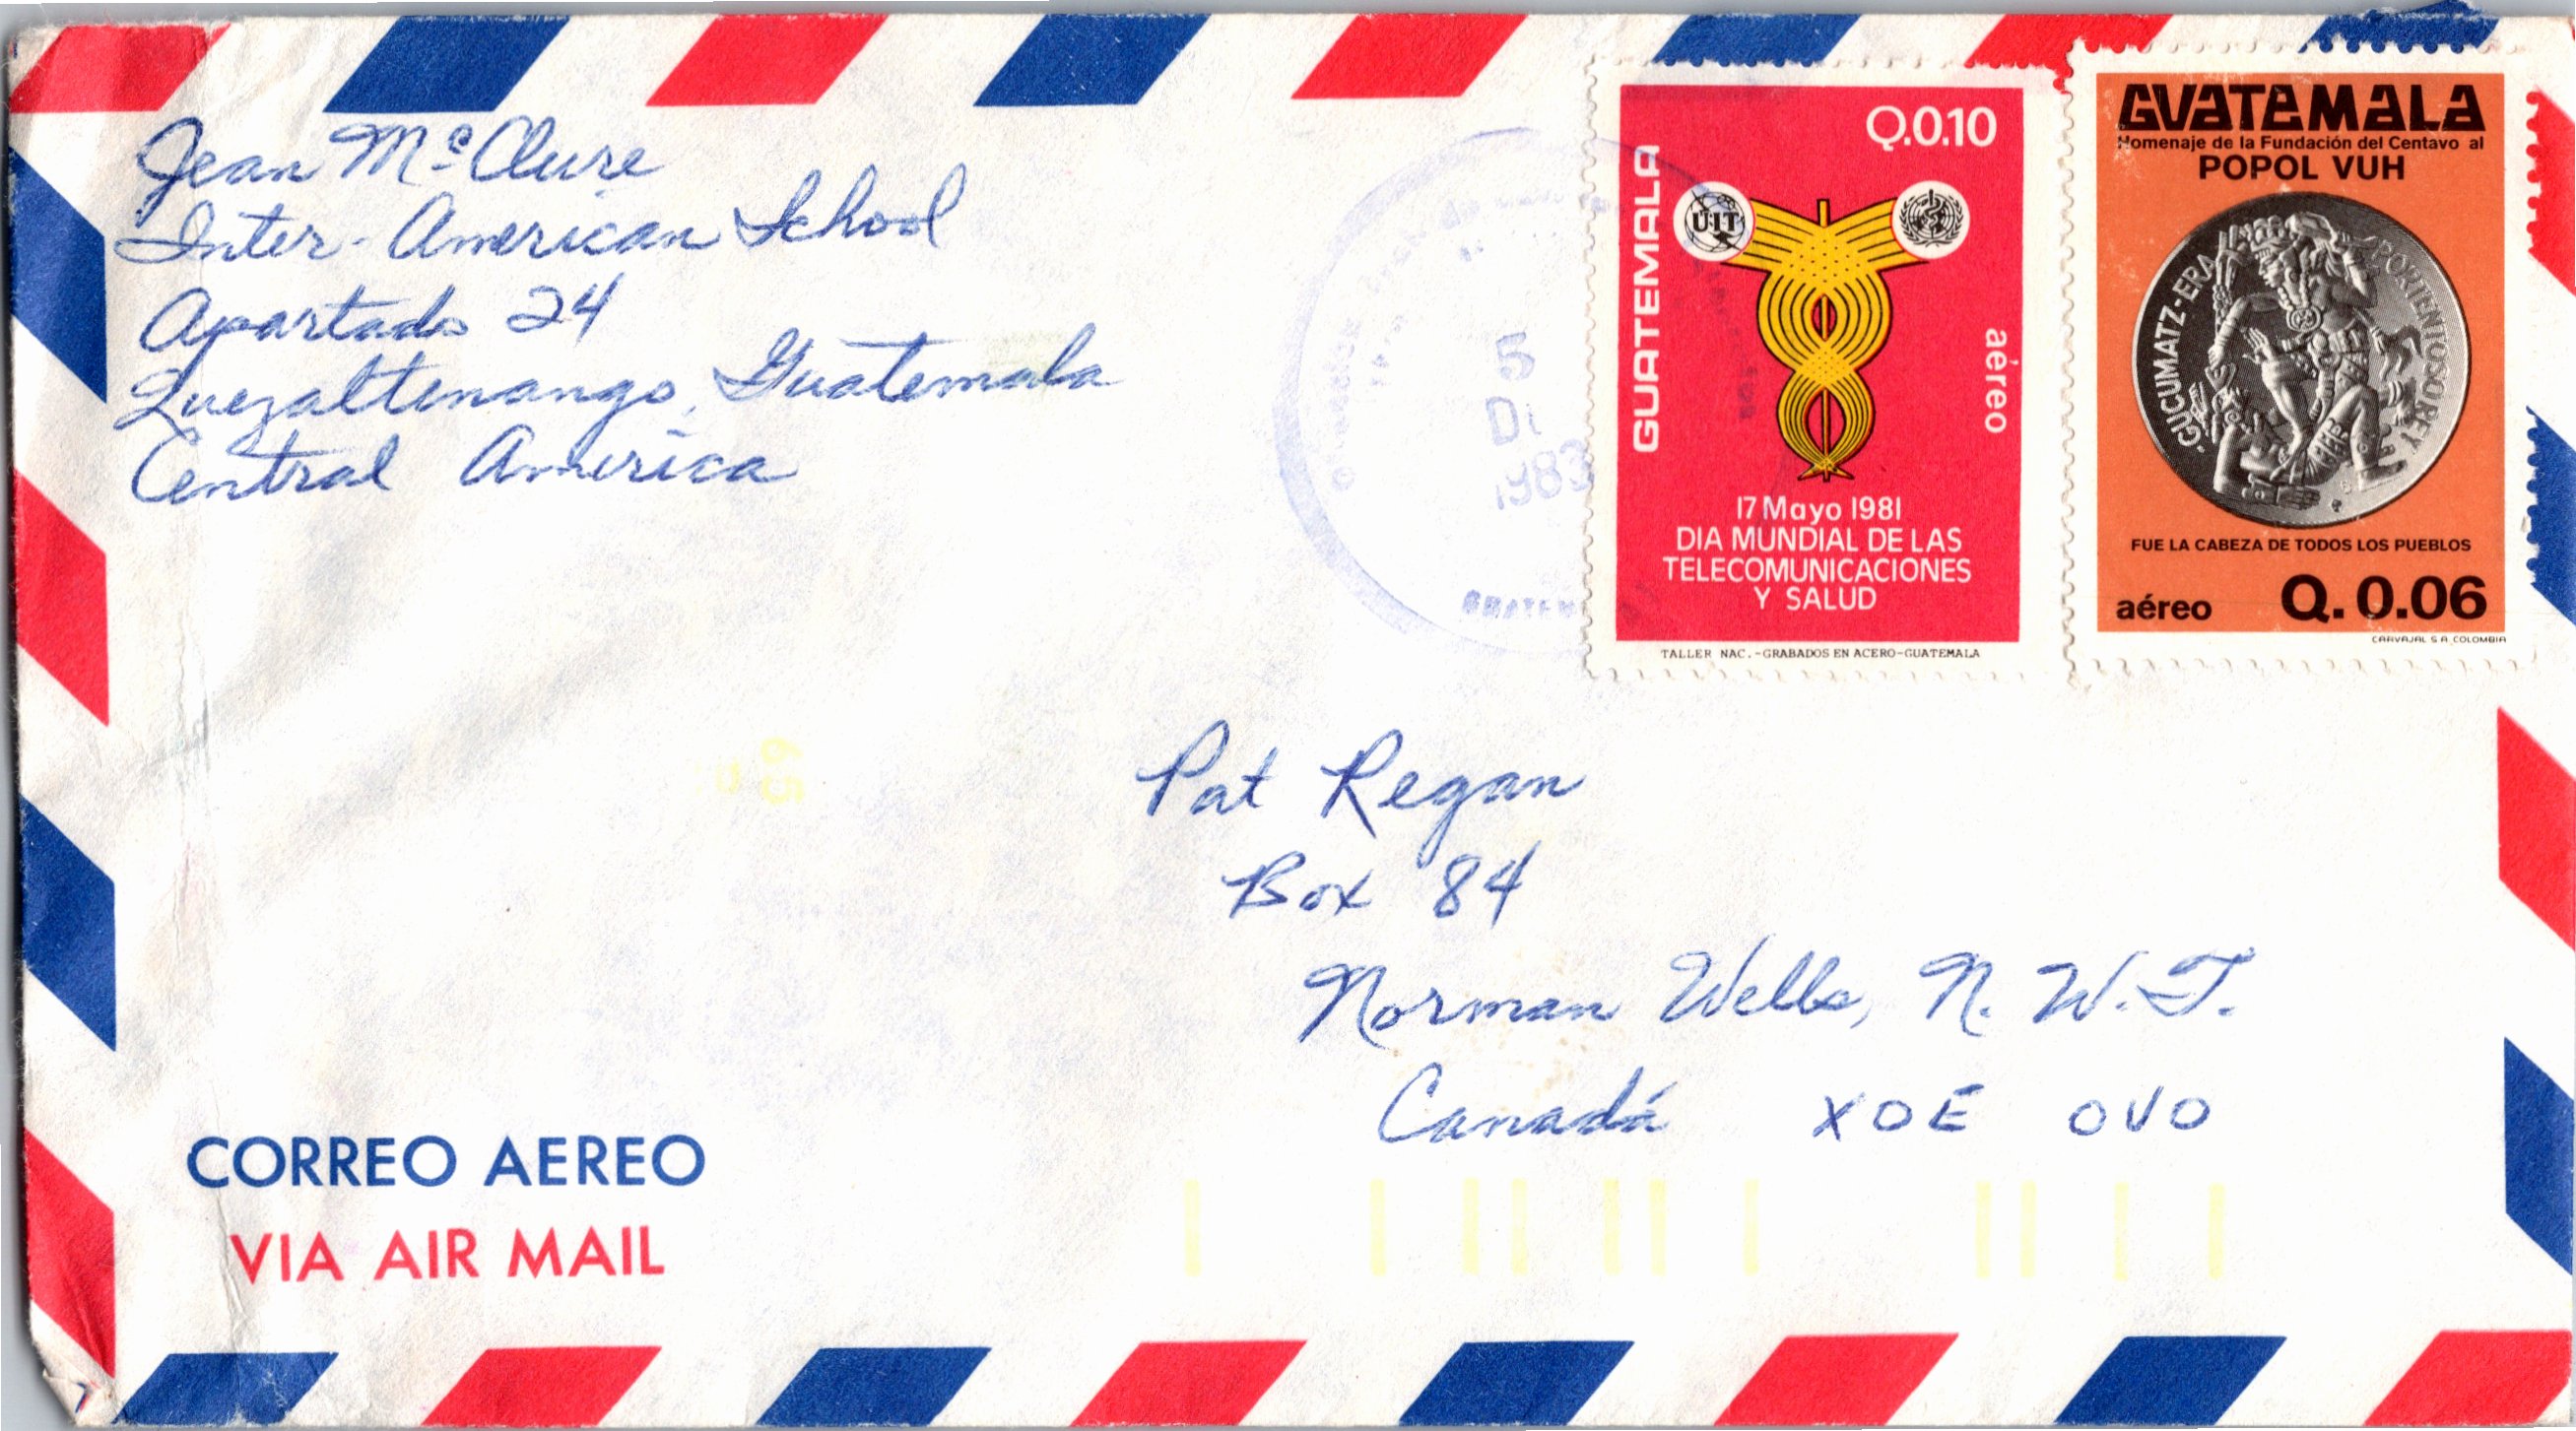 Jean Mc Clure
Inter-American School
Apartado 24
Quezaltenango, Guatemala
Central America
5
DI
1983
GUATEMALA
Q.0.10
UIT
aéreo
17 Mayo 1981
DIA MUNDIAL DE LAS
TELECOMUNICACIONES
Y SALUD
TALLER NAC.-GRABADOS EN ACERO-GUATEMALA
GVATEMALA
Homenaje de la Fundación del Centavo al
POPOL VUH
·GUCUMATZ-ERA PORTENTOSO REY
FUE LA CABEZA DE TODOS LOS PUEBLOS
aéreo Q.0.06
CARVAJAL S A COLOMBIA
65
Pat Regan
Box 84
Norman Wells, N. W. T.
Canadá XOE OVO
CORREO AEREO
VIA AIR MAIL